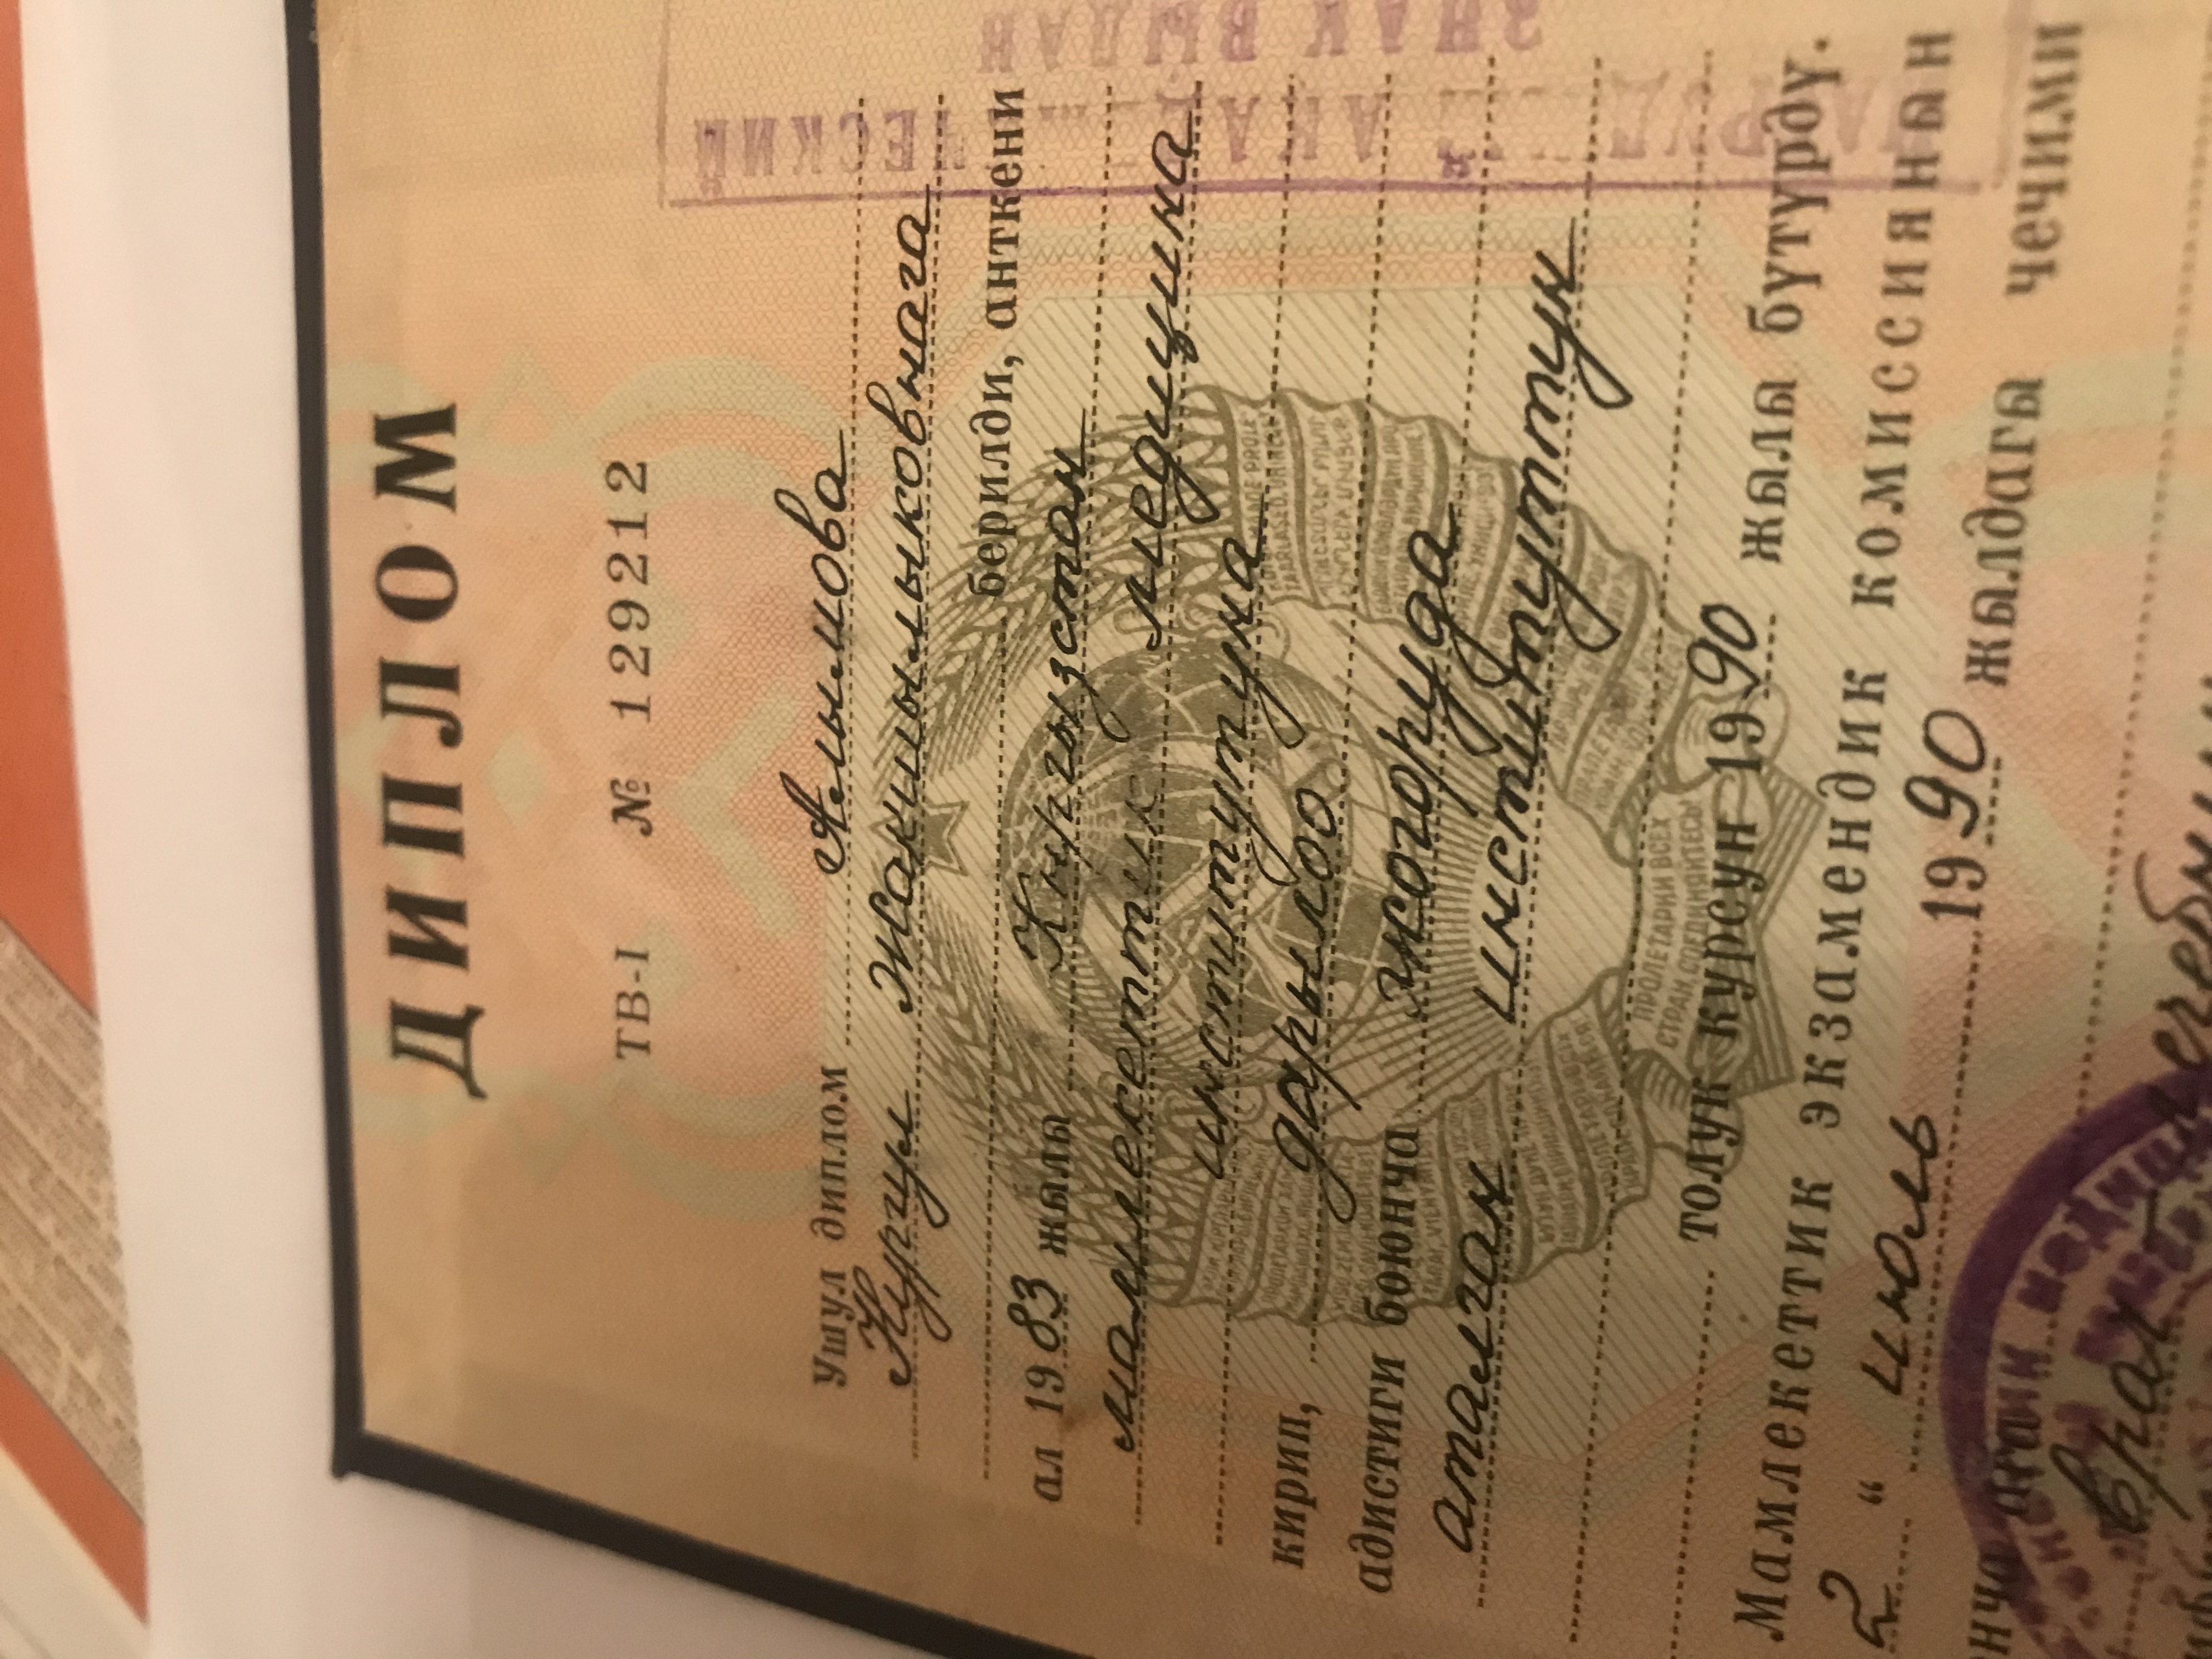 ДИПЛОМ
ТВ-I № 129212
Ушул диплом Алымова
Нургул Жакшылыковнага
берилди, анткени
ал 1983 жылы Кыргызстан
мамлекеттик медицина
институтуна
кирип, дарылоо
адистиги боюнча жогоруда
аталган институттун
толук курсун 1990 жылы бүтүрдү.
Мамлекеттик экзамендик комиссиянын
2 " июль 1990 жылдагы чечими
ага
врач
ПРОЛЕТАРИИ ВСЕХ
СТРАН, СОЕДИНЯЙТЕСЬ!
ЗНАК ВЫДАН